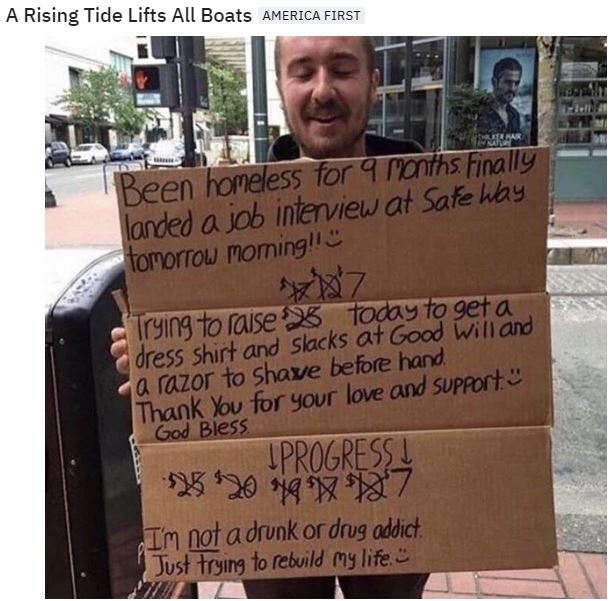 A Rising Tide Lifts All Boats AMERICA FIRST
Been homeless for 9 months. Finally
landed a job interview at Safe Way
tomorrow morning!!
$17 $12 7
Trying to raise $25 today to get a
dress shirt and slacks at Good Will and
a razor to shave before hand.
Thank You for your love and support.
God Bless
↓PROGRESS↓
$25 $20 $19 $17 $12 7
I'm not a drunk or drug addict.
Just trying to rebuild my life.
HAIR
BY NATURE